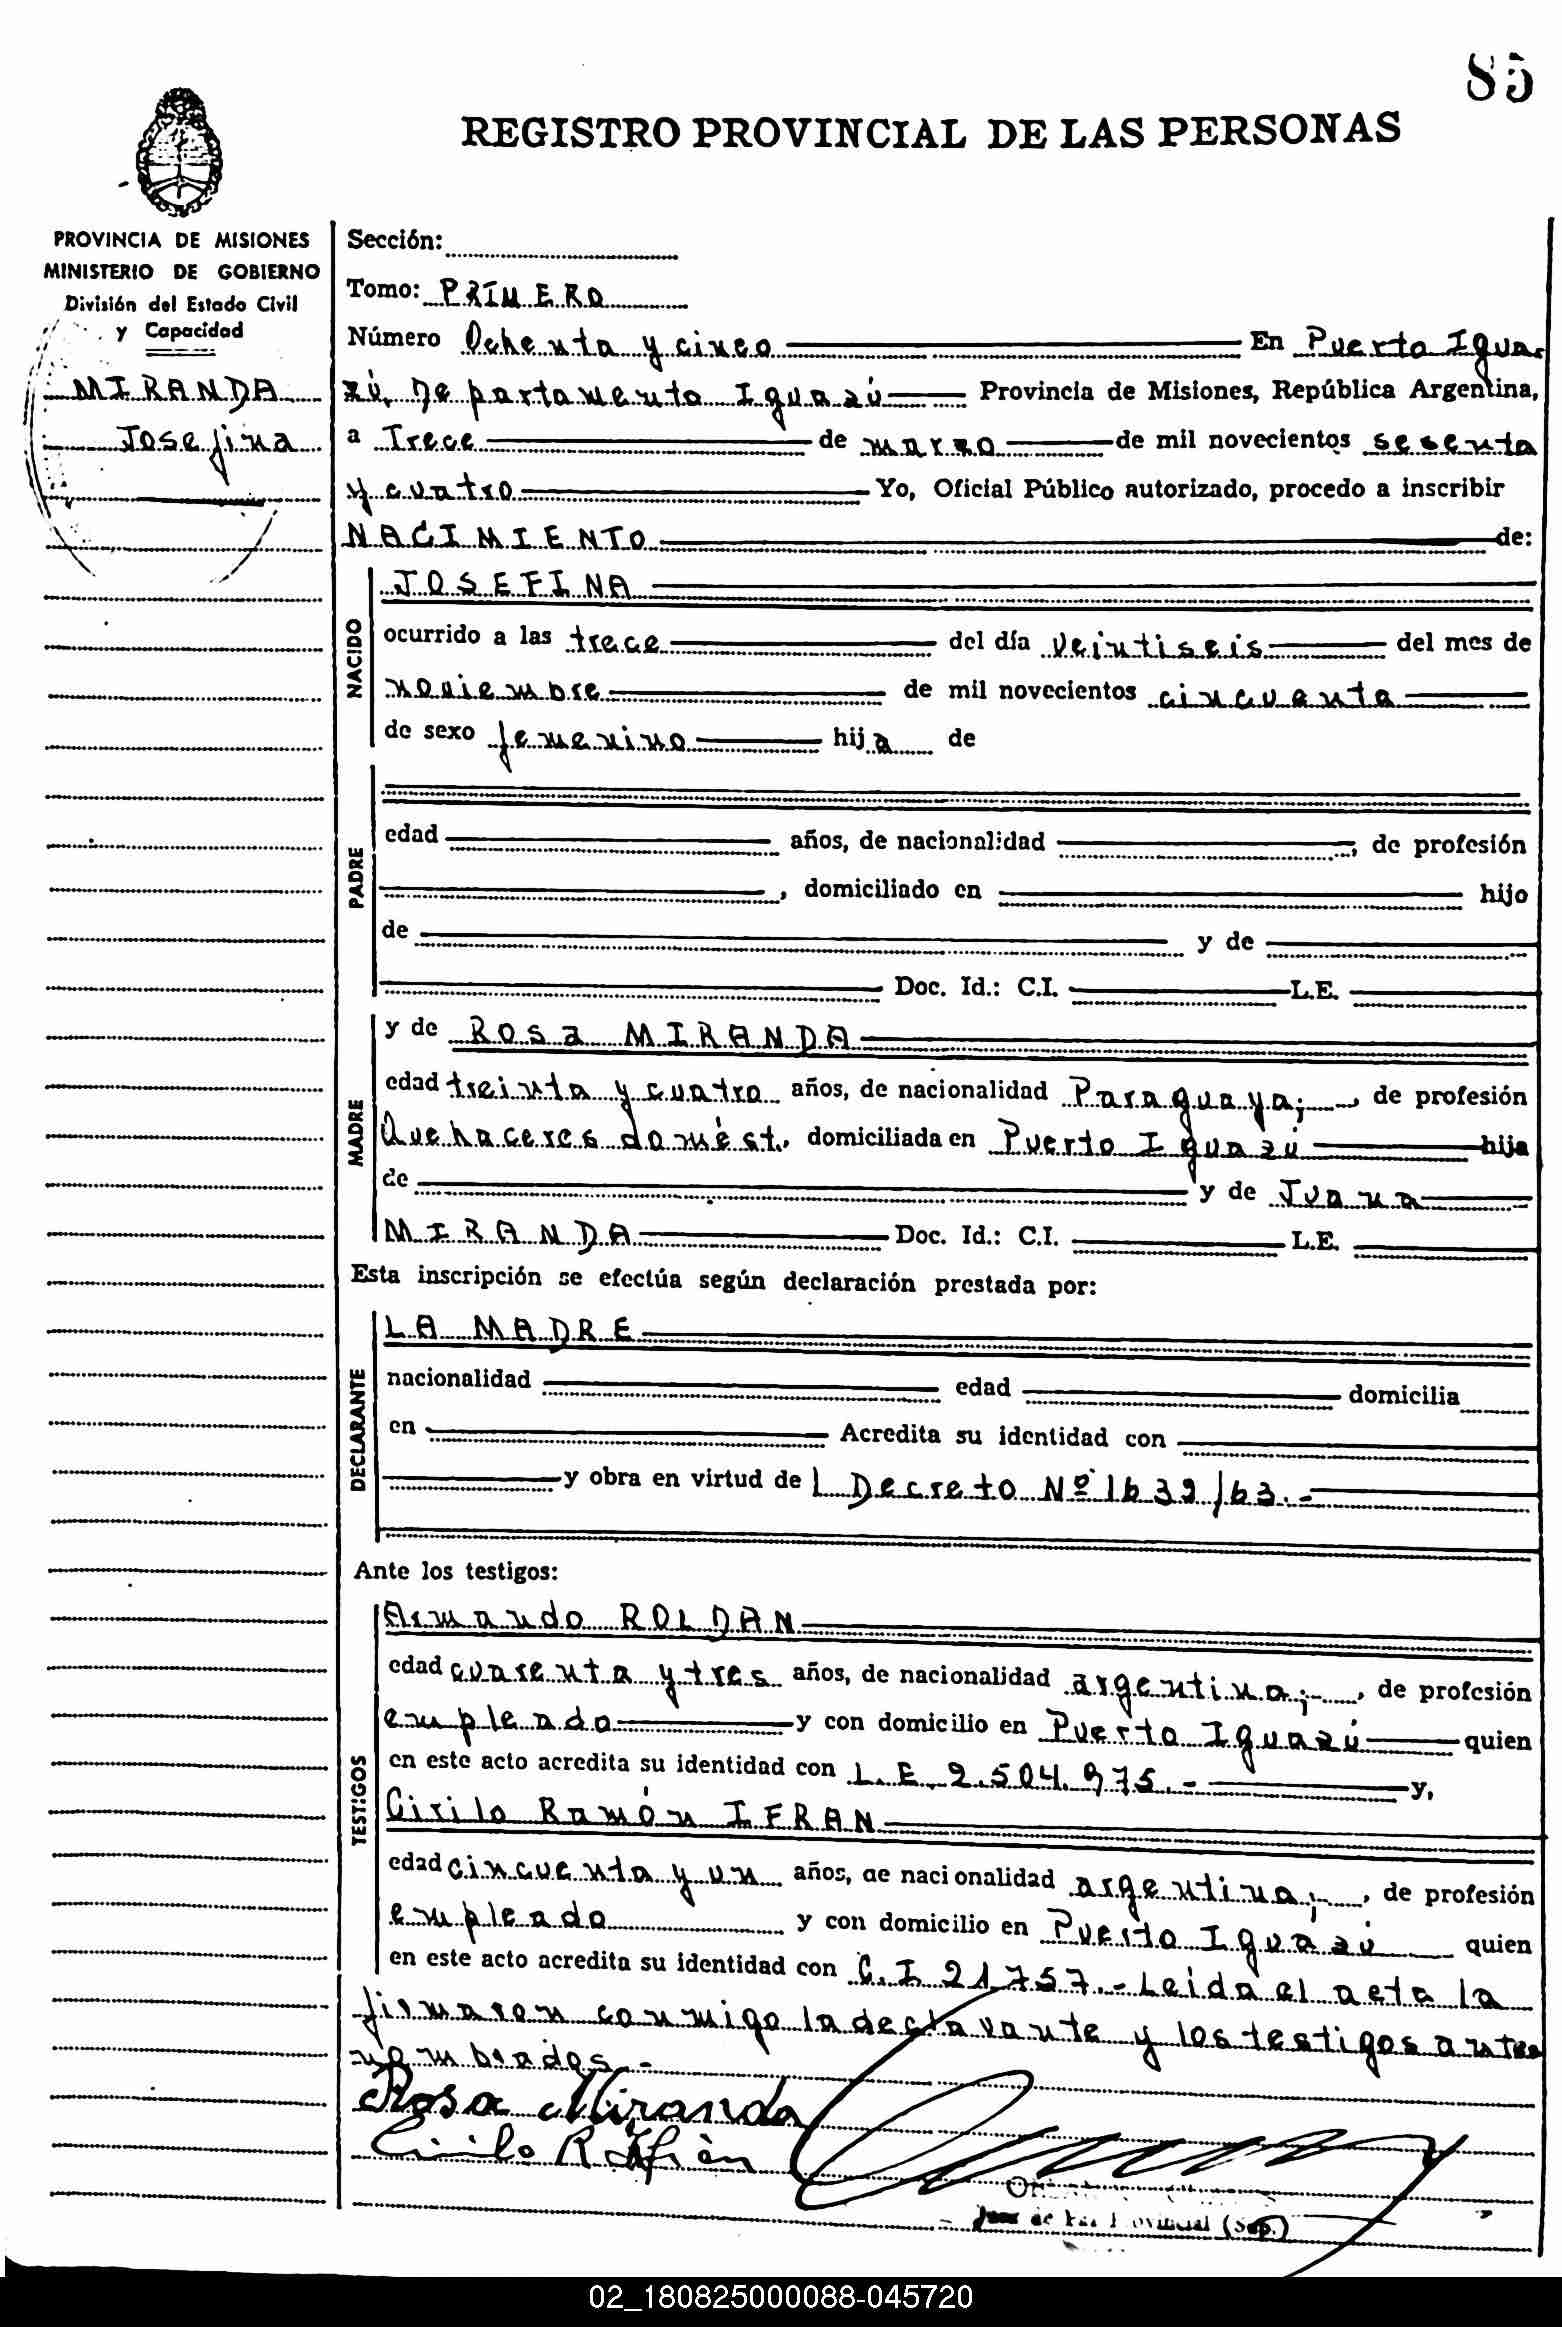 85
REGISTRO PROVINCIAL DE LAS PERSONAS
PROVINCIA DE MISIONES
MINISTERIO DE GOBIERNO
División del Estado Civil
y Capacidad
MIRANDA
Josefina
Sección:
Tomo: PRIMERO
Número Ochenta y cinco En Puerto Igua-
zú, Departamento Iguazú Provincia de Misiones, República Argentina,
a Trece de marzo de mil novecientos sesenta
y cuatro Yo, Oficial Público autorizado, procedo a inscribir
NACIMIENTO de:
NACIDO
JOSEFINA
ocurrido a las trece del día veintiseis del mes de
noviembre de mil novecientos cincuenta
de sexo femenino hija de
PADRE
edad años, de nacionalidad , de profesión
, domiciliado en hijo
de y de
Doc. Id.: C.I. L.E.
MADRE
y de Rosa MIRANDA
edad treinta y cuatro años, de nacionalidad Paraguaya; , de profesión
Quehaceres domést. domiciliada en Puerto Iguazú hija
de y de Juana
MIRANDA Doc. Id.: C.I. L.E.
Esta inscripción se efectúa según declaración prestada por:
DECLARANTE
LA MADRE
nacionalidad edad domicilia
en Acredita su identidad con
y obra en virtud de l Decreto Nº 1639/63.-
Ante los testigos:
TESTIGOS
Armando ROLDAN
edad cuarenta y tres años, de nacionalidad argentina;- , de profesión
empleado y con domicilio en Puerto Iguazú quien
en este acto acredita su identidad con L.E. 2.504.975.- y,
Cirilo Ramón IFRAN
edad cincuenta y un años, de nacionalidad argentina;- , de profesión
empleado y con domicilio en Puerto Iguazú quien
en este acto acredita su identidad con C.I. 21757.- Leída el acta la
firmaron conmigo la declarante y los testigos antes
nombrados.-
Rosa Miranda
Cirilo R Ifrán
Juez de Paz Provincial (Sup.)
02_180825000088-045720